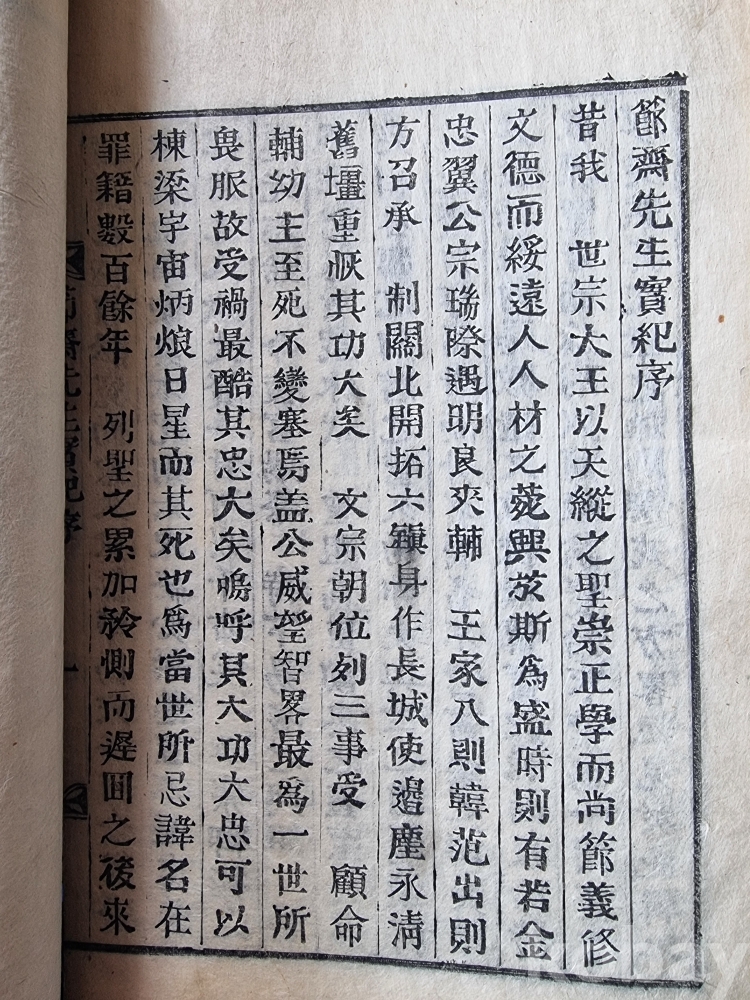 節齋先生實紀序
昔我　世宗大王以天縱之聖崇正學而尚節義修
文德而綏遠人人材之蔚興茨斯爲盛時則有若金
忠翼公宗瑞際遇明良夾輔　王家入則韓范出則
方召承　制關北開拓六鎭身作長城使邊塵永淸
舊壃重恢其功大矣　文宗朝位列三事受　顧命
輔幼主至死不變塞焉盖公威望智畧最爲一世所
畏服故受禍最酷其忠大矣嗚呼其大功大忠可以
棟梁宇宙炳烺日星而其死也爲當世所忌諱名在
罪籍數百餘年　列聖之累加矜惻而遲回之後來
節齋先生實紀序
一